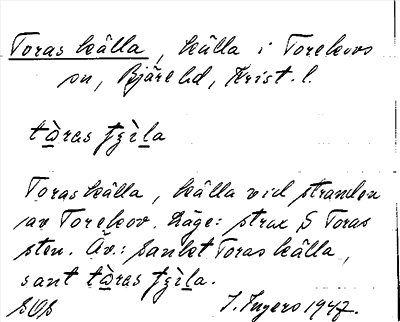 Toras källa, källa i Torekovs
sn, Bjäre hd, Krist. l.
tò̱ras ɟʒì̱la
Toras källa, källa vid stranden
av Torekov. Läge: strax S Toras
sten. Äv.: Sankt Toras källa,
sant tò̱ras ɟʒì̱la.
I. Ingers 1947.